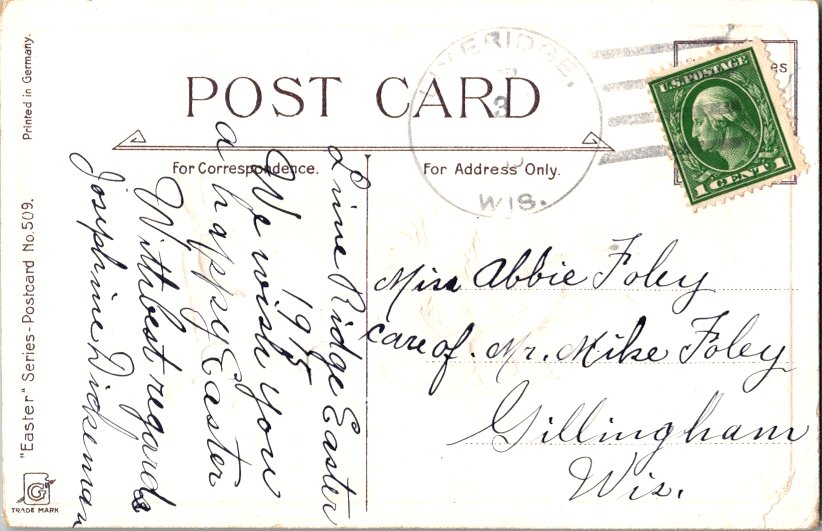 POST CARD
For Correspondence.
For Address Only.
LIME RIDGE,
3
WIS.
U.S. POSTAGE
1 CENT 1
es
Lime Ridge Easter
1915
We wish you
a happy Easter
With best regards
Josephine Dickeman
Miss Abbie Foley
care of. Mr. Mike Foley
Gillingham
Wis.
Printed in Germany.
"Easter" Series - Postcard No. 509.
G
TRADE MARK